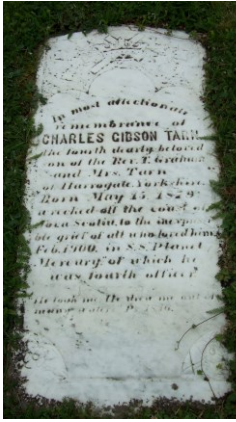 In most affectionate
remembrance of
CHARLES GIBSON TARN
the fourth dearly beloved
son of the Rev. T. Graham
and Mrs. Tarn
of Harrogate, Yorkshire.
Born May 15, 1879,
wrecked off the coast of
Nova Scotia, to the inexpressi-
ble grief of all who loved him,
Feb. 1900, in S.S. Planet
Mercury, of which he
was fourth officer.
He took me, He drew me out of
many waters. Ps.